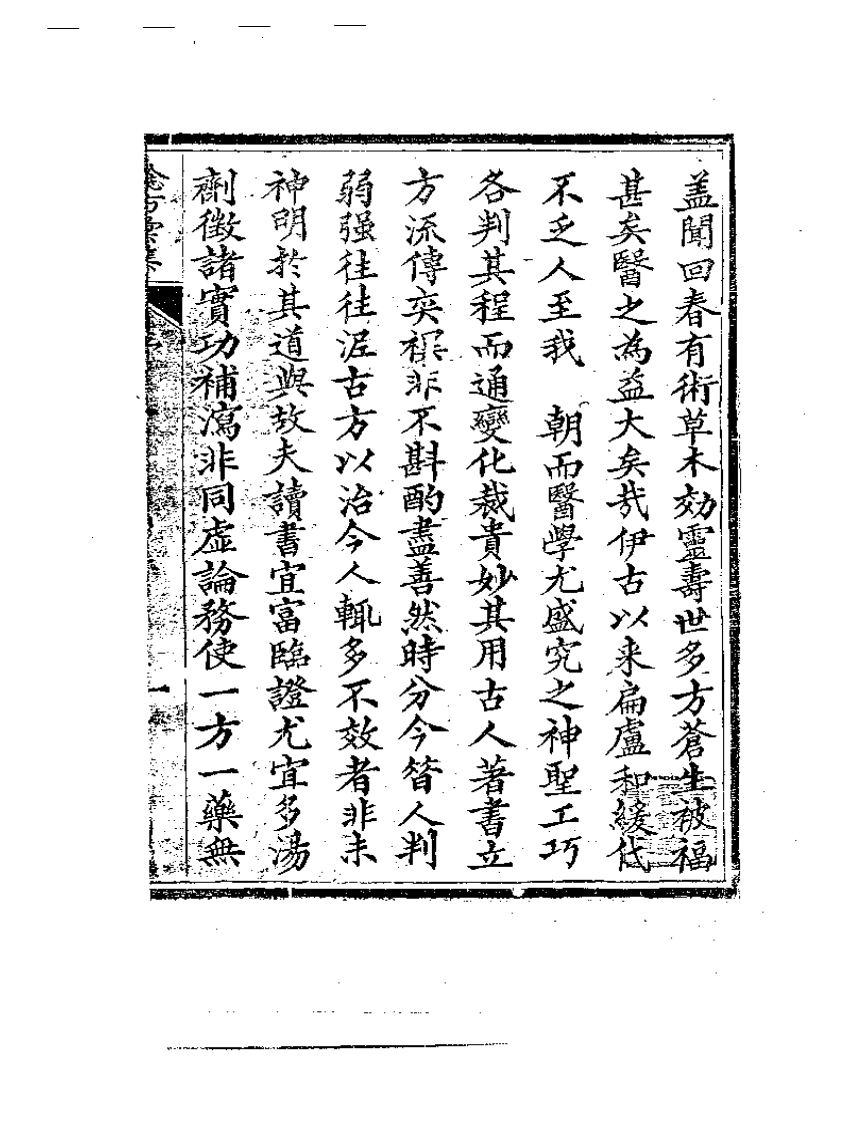 盖聞回春有術草木効靈壽世多方蒼生被福
甚矣醫之為益大矣哉伊古以来扁盧和緩代
不乏人至我　朝而醫學尤盛究之神聖工巧
各判其程而通變化裁貴妙其用古人著書立
方流傳奕禩非不斟酌盡善然時分今昝人判
弱强往往泥古方以治今人輒多不效者非未
神明扵其道與故夫讀書宜富臨證尤宜多湯
劑徴諸實功補瀉非同虛論務使一方一藥無
一